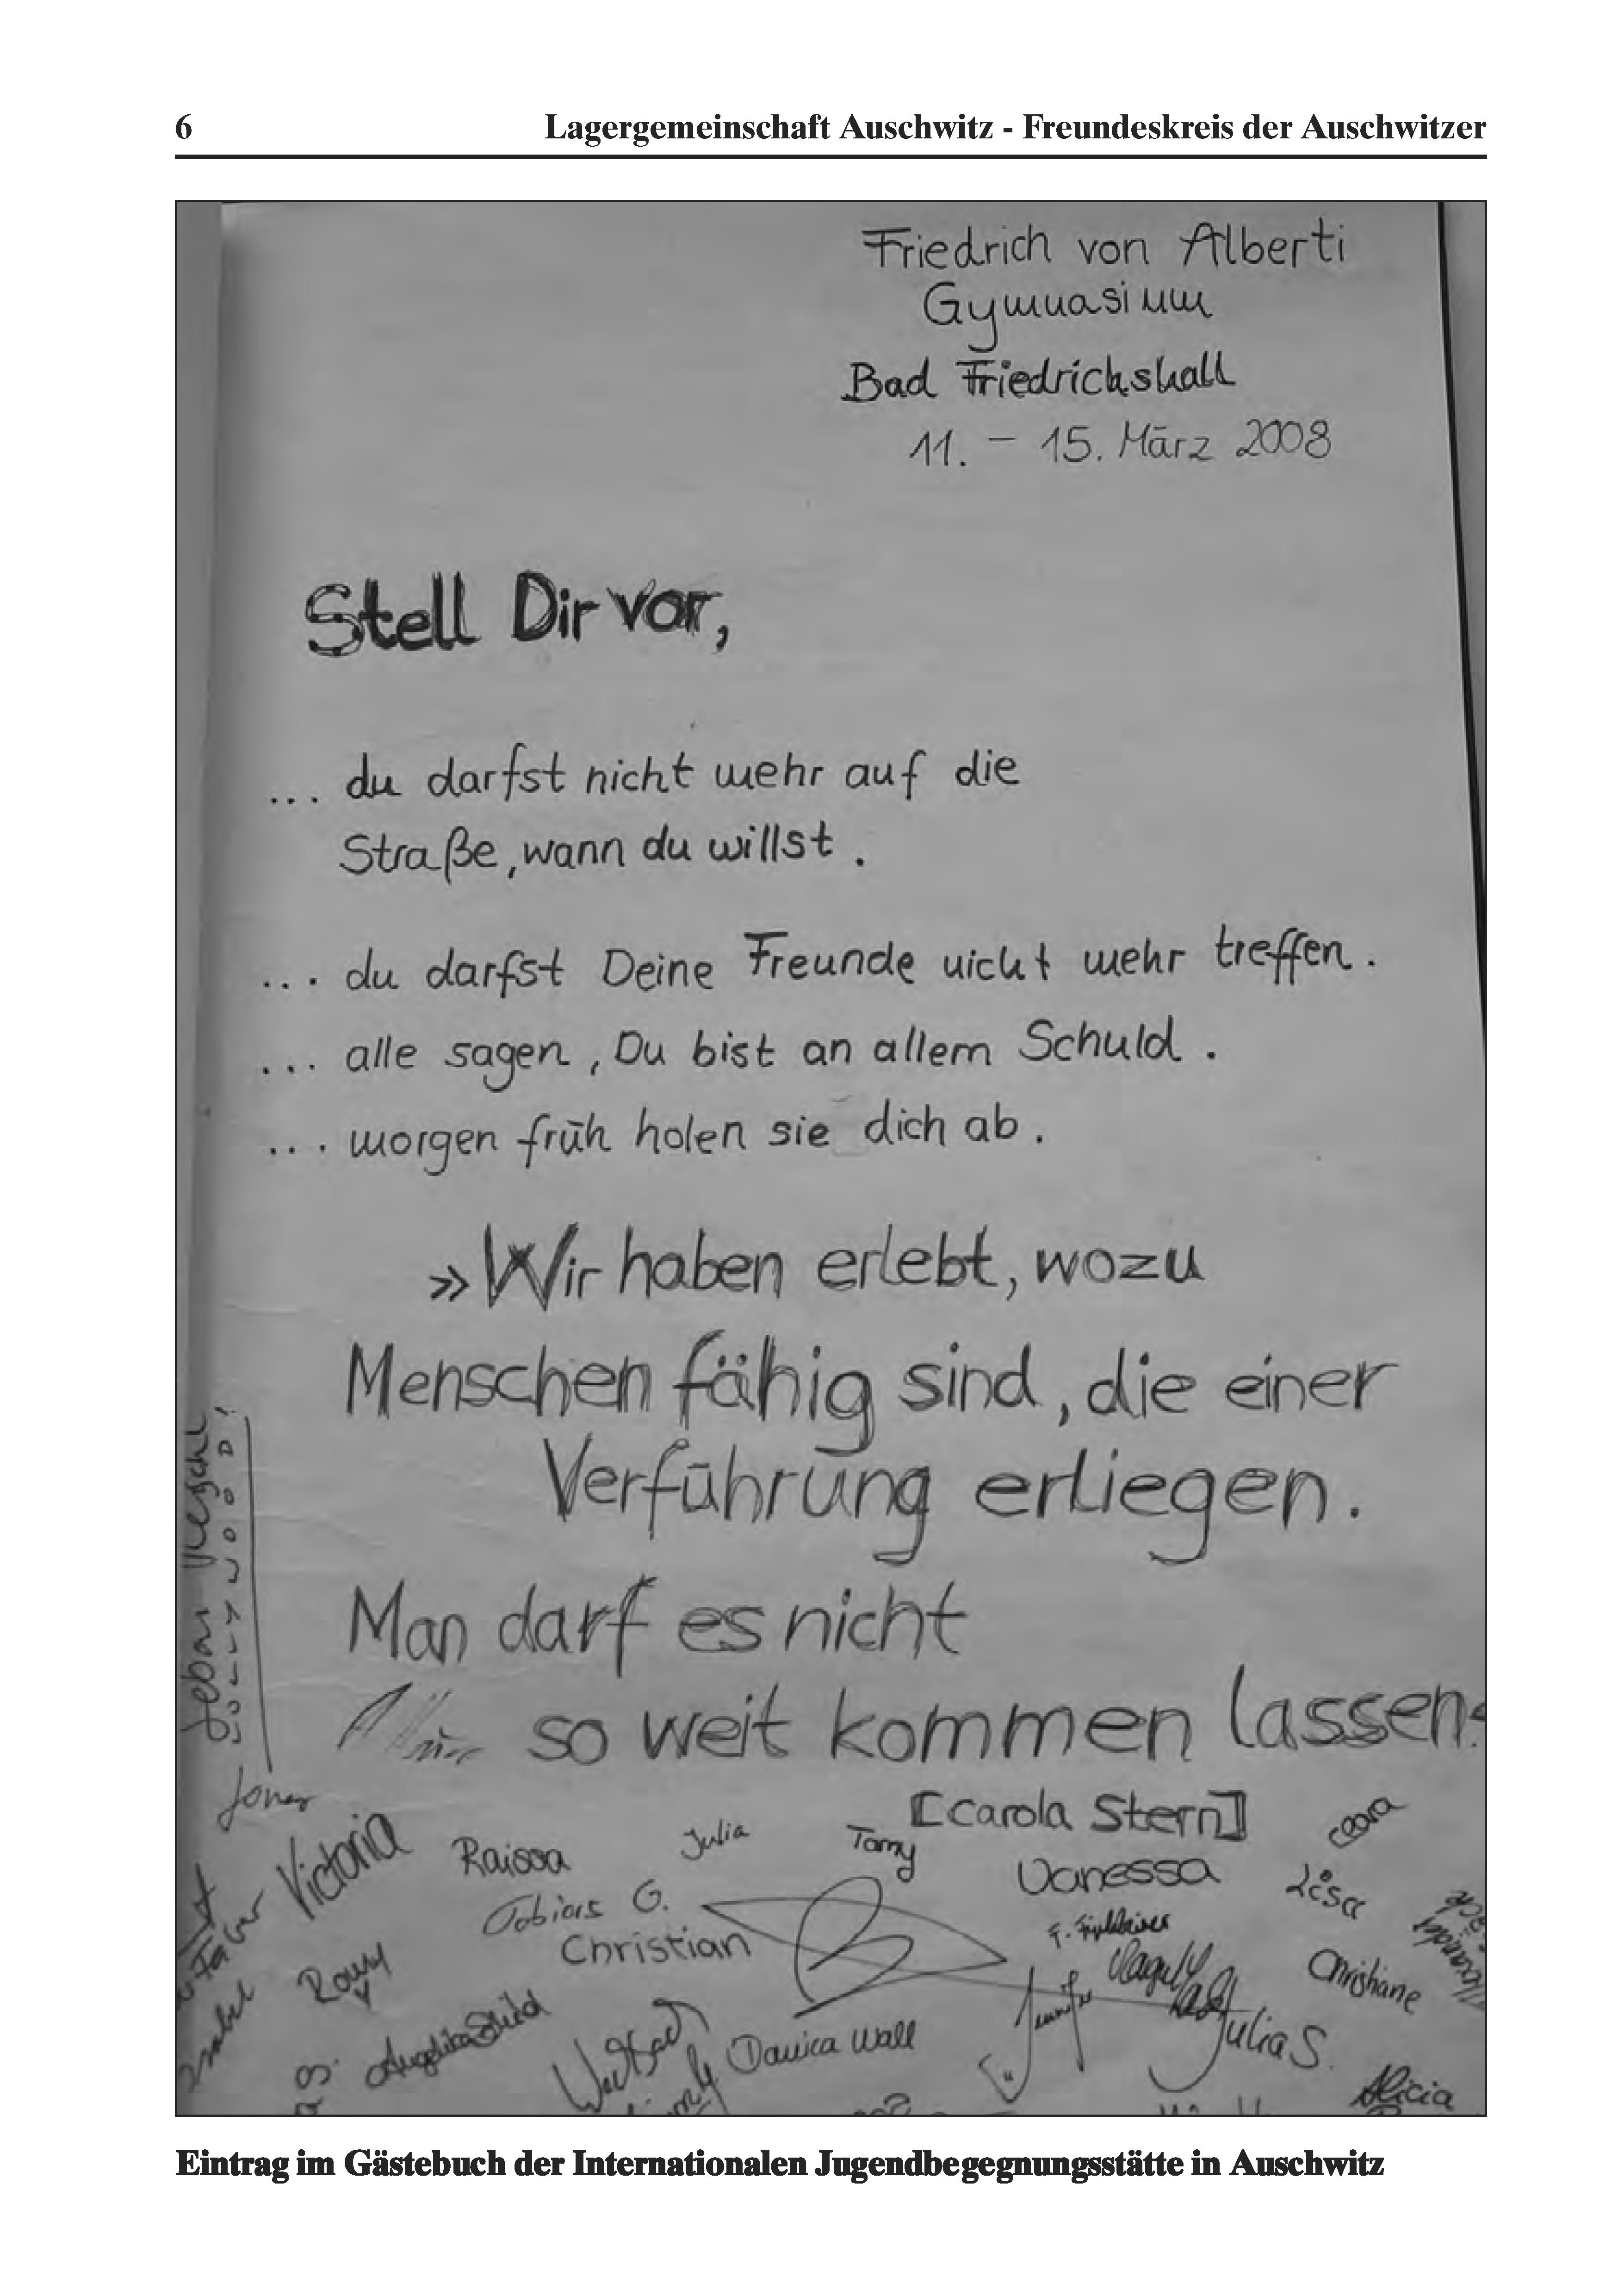 6 Lagergemeinschaft Auschwitz - Freundeskreis der Auschwitzer
Friedrich von Alberti
Gymnasium
Bad Friedrichshall
11. – 15. März 2008
Stell Dir vor,
... du darfst nicht mehr auf die
Straße, wann du willst.
... du darfst Deine Freunde nicht mehr treffen.
... alle sagen, Du bist an allem Schuld.
... morgen früh holen sie dich ab.
»Wir haben erlebt, wozu
Menschen fähig sind, die einer
Verführung erliegen.
Man darf es nicht
so weit kommen lassen.«
[Carola Stern]
Jonas
Victoria
Raissa
Julia
Tamy
Clara
Vanessa
Lisa
Tobias G.
Christian
Romy
Christiane
Isabel
Angelika Schild
Danica Wall
Jennifer
Julia S.
Alicia
Eintrag im Gästebuch der Internationalen Jugendbegegnungsstätte in Auschwitz